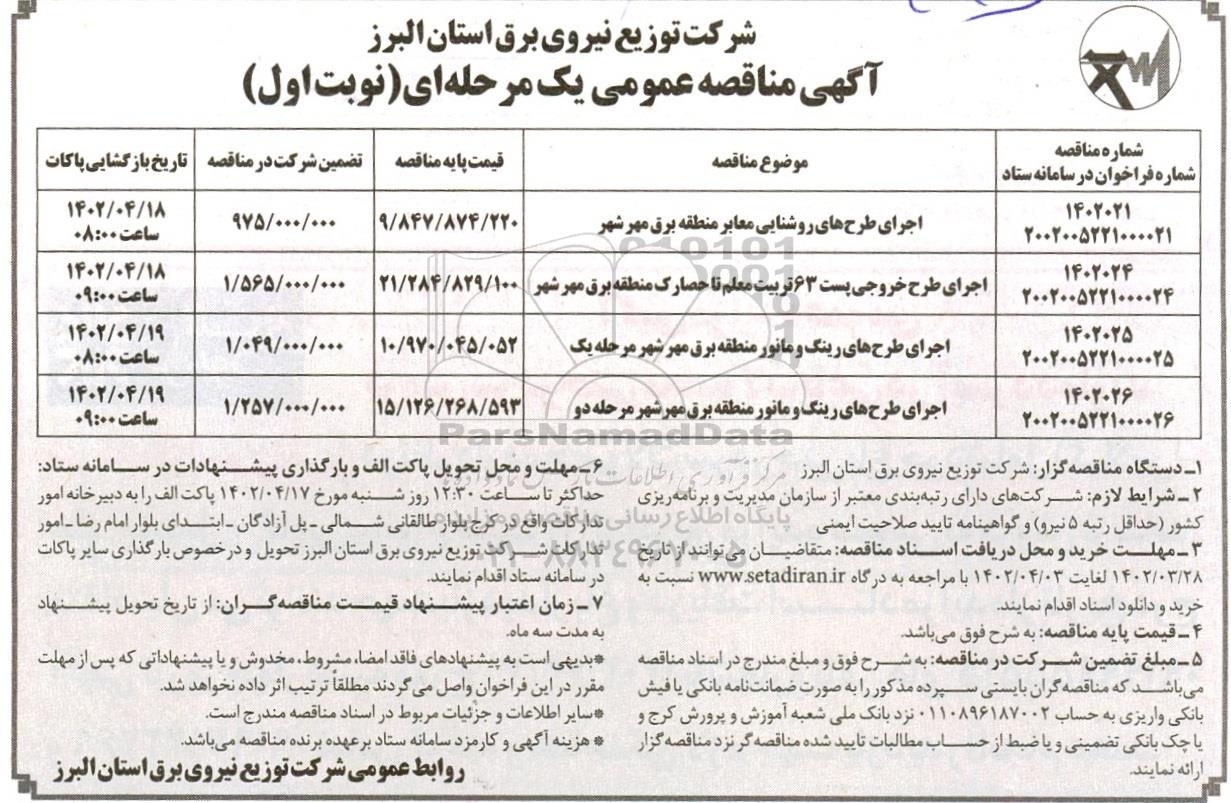 شرکت توزیع نیروی برق استان البرز
آگهی مناقصه عمومی یک مرحله‌ای (نوبت اول)
شماره مناقصه
شماره فراخوان در سامانه ستاد
موضوع مناقصه
قیمت پایه مناقصه
تضمین شرکت در مناقصه
تاریخ بازگشایی پاکات
۱۴۰۲۰۲۱
۲۰۰۲۰۰۵۲۲۱۰۰۰۰۲۱
اجرای طرح‌های روشنایی معابر منطقه برق مهرشهر
۹/۸۴۷/۸۷۴/۲۲۰
۹۷۵/۰۰۰/۰۰۰
۱۴۰۲/۰۴/۱۸
ساعت ۰۸:۰۰
۱۴۰۲۰۲۴
۲۰۰۲۰۰۵۲۲۱۰۰۰۰۲۴
اجرای طرح خروجی پست ۶۳ تربیت معلم تا حصارک منطقه برق مهرشهر
۲۱/۲۸۴/۸۲۹/۱۰۰
۱/۵۶۵/۰۰۰/۰۰۰
۱۴۰۲/۰۴/۱۸
ساعت ۰۹:۰۰
۱۴۰۲۰۲۵
۲۰۰۲۰۰۵۲۲۱۰۰۰۰۲۵
اجرای طرح‌های رینگ و مانور منطقه برق مهرشهر مرحله یک
۱۰/۹۷۰/۰۴۵/۰۵۲
۱/۰۴۹/۰۰۰/۰۰۰
۱۴۰۲/۰۴/۱۹
ساعت ۰۸:۰۰
۱۴۰۲۰۲۶
۲۰۰۲۰۰۵۲۲۱۰۰۰۰۲۶
اجرای طرح‌های رینگ و مانور منطقه برق مهرشهر مرحله دو
۱۵/۱۲۶/۲۶۸/۵۹۳
۱/۲۵۷/۰۰۰/۰۰۰
۱۴۰۲/۰۴/۱۹
ساعت ۰۹:۰۰
ParsNamadData
پایگاه اطلاع رسانی مناقصه و مزایده
۱ـ دستگاه مناقصه‌گزار: شرکت توزیع نیروی برق استان البرز
۲ ـ شرایط لازم: شرکت‌های دارای رتبه‌بندی معتبر از سازمان مدیریت و برنامه‌ریزی
کشور (حداقل رتبه ۵ نیرو) و گواهینامه تایید صلاحیت ایمنی
۳ ـ مهلت خرید و محل دریافت اسناد مناقصه: متقاضیان می‌توانند از تاریخ
۱۴۰۲/۰۳/۲۸ لغایت ۱۴۰۲/۰۴/۰۳ با مراجعه به درگاه www.setadiran.ir نسبت به
خرید و دانلود اسناد اقدام نمایند.
۴ ـ قیمت پایه مناقصه: به شرح فوق می‌باشد.
۵ ـ مبلغ تضمین شرکت در مناقصه: به شرح فوق و مبلغ مندرج در اسناد مناقصه
می‌باشد که مناقصه‌گران بایستی سپرده مذکور را به صورت ضمانت‌نامه بانکی یا فیش
بانکی واریزی به حساب ۰۱۱۰۸۹۶۱۸۷۰۰۲ نزد بانک ملی شعبه آموزش و پرورش کرج و
یا چک بانکی تضمینی و یا ضبط از حساب مطالبات تایید شده مناقصه‌گر نزد مناقصه‌گزار
ارائه نمایند.
۶ ـ مهلت و محل تحویل پاکت الف و بارگذاری پیشنهادات در سامانه ستاد:
حداکثر تا ساعت ۱۲:۳۰ روز شنبه مورخ ۱۴۰۲/۰۴/۱۷ پاکت الف را به دبیرخانه امور
تدارکات واقع در کرج بلوار طالقانی شمالی ـ پل آزادگان ـ ابتدای بلوار امام رضا ـ امور
تدارکات شرکت توزیع نیروی برق استان البرز تحویل و درخصوص بارگذاری سایر پاکات
در سامانه ستاد اقدام نمایند.
۷ ـ زمان اعتبار پیشنهاد قیمت مناقصه‌گران: از تاریخ تحویل پیشنهاد
به مدت سه ماه.
*بدیهی است به پیشنهادهای فاقد امضا، مشروط، مخدوش و یا پیشنهاداتی که پس از مهلت
مقرر در این فراخوان واصل می‌گردند مطلقاً ترتیب اثر داده نخواهد شد.
*سایر اطلاعات و جزئیات مربوط در اسناد مناقصه مندرج است.
* هزینه آگهی و کارمزد سامانه ستاد برعهده برنده مناقصه می‌باشد.
روابط عمومی شرکت توزیع نیروی برق استان البرز